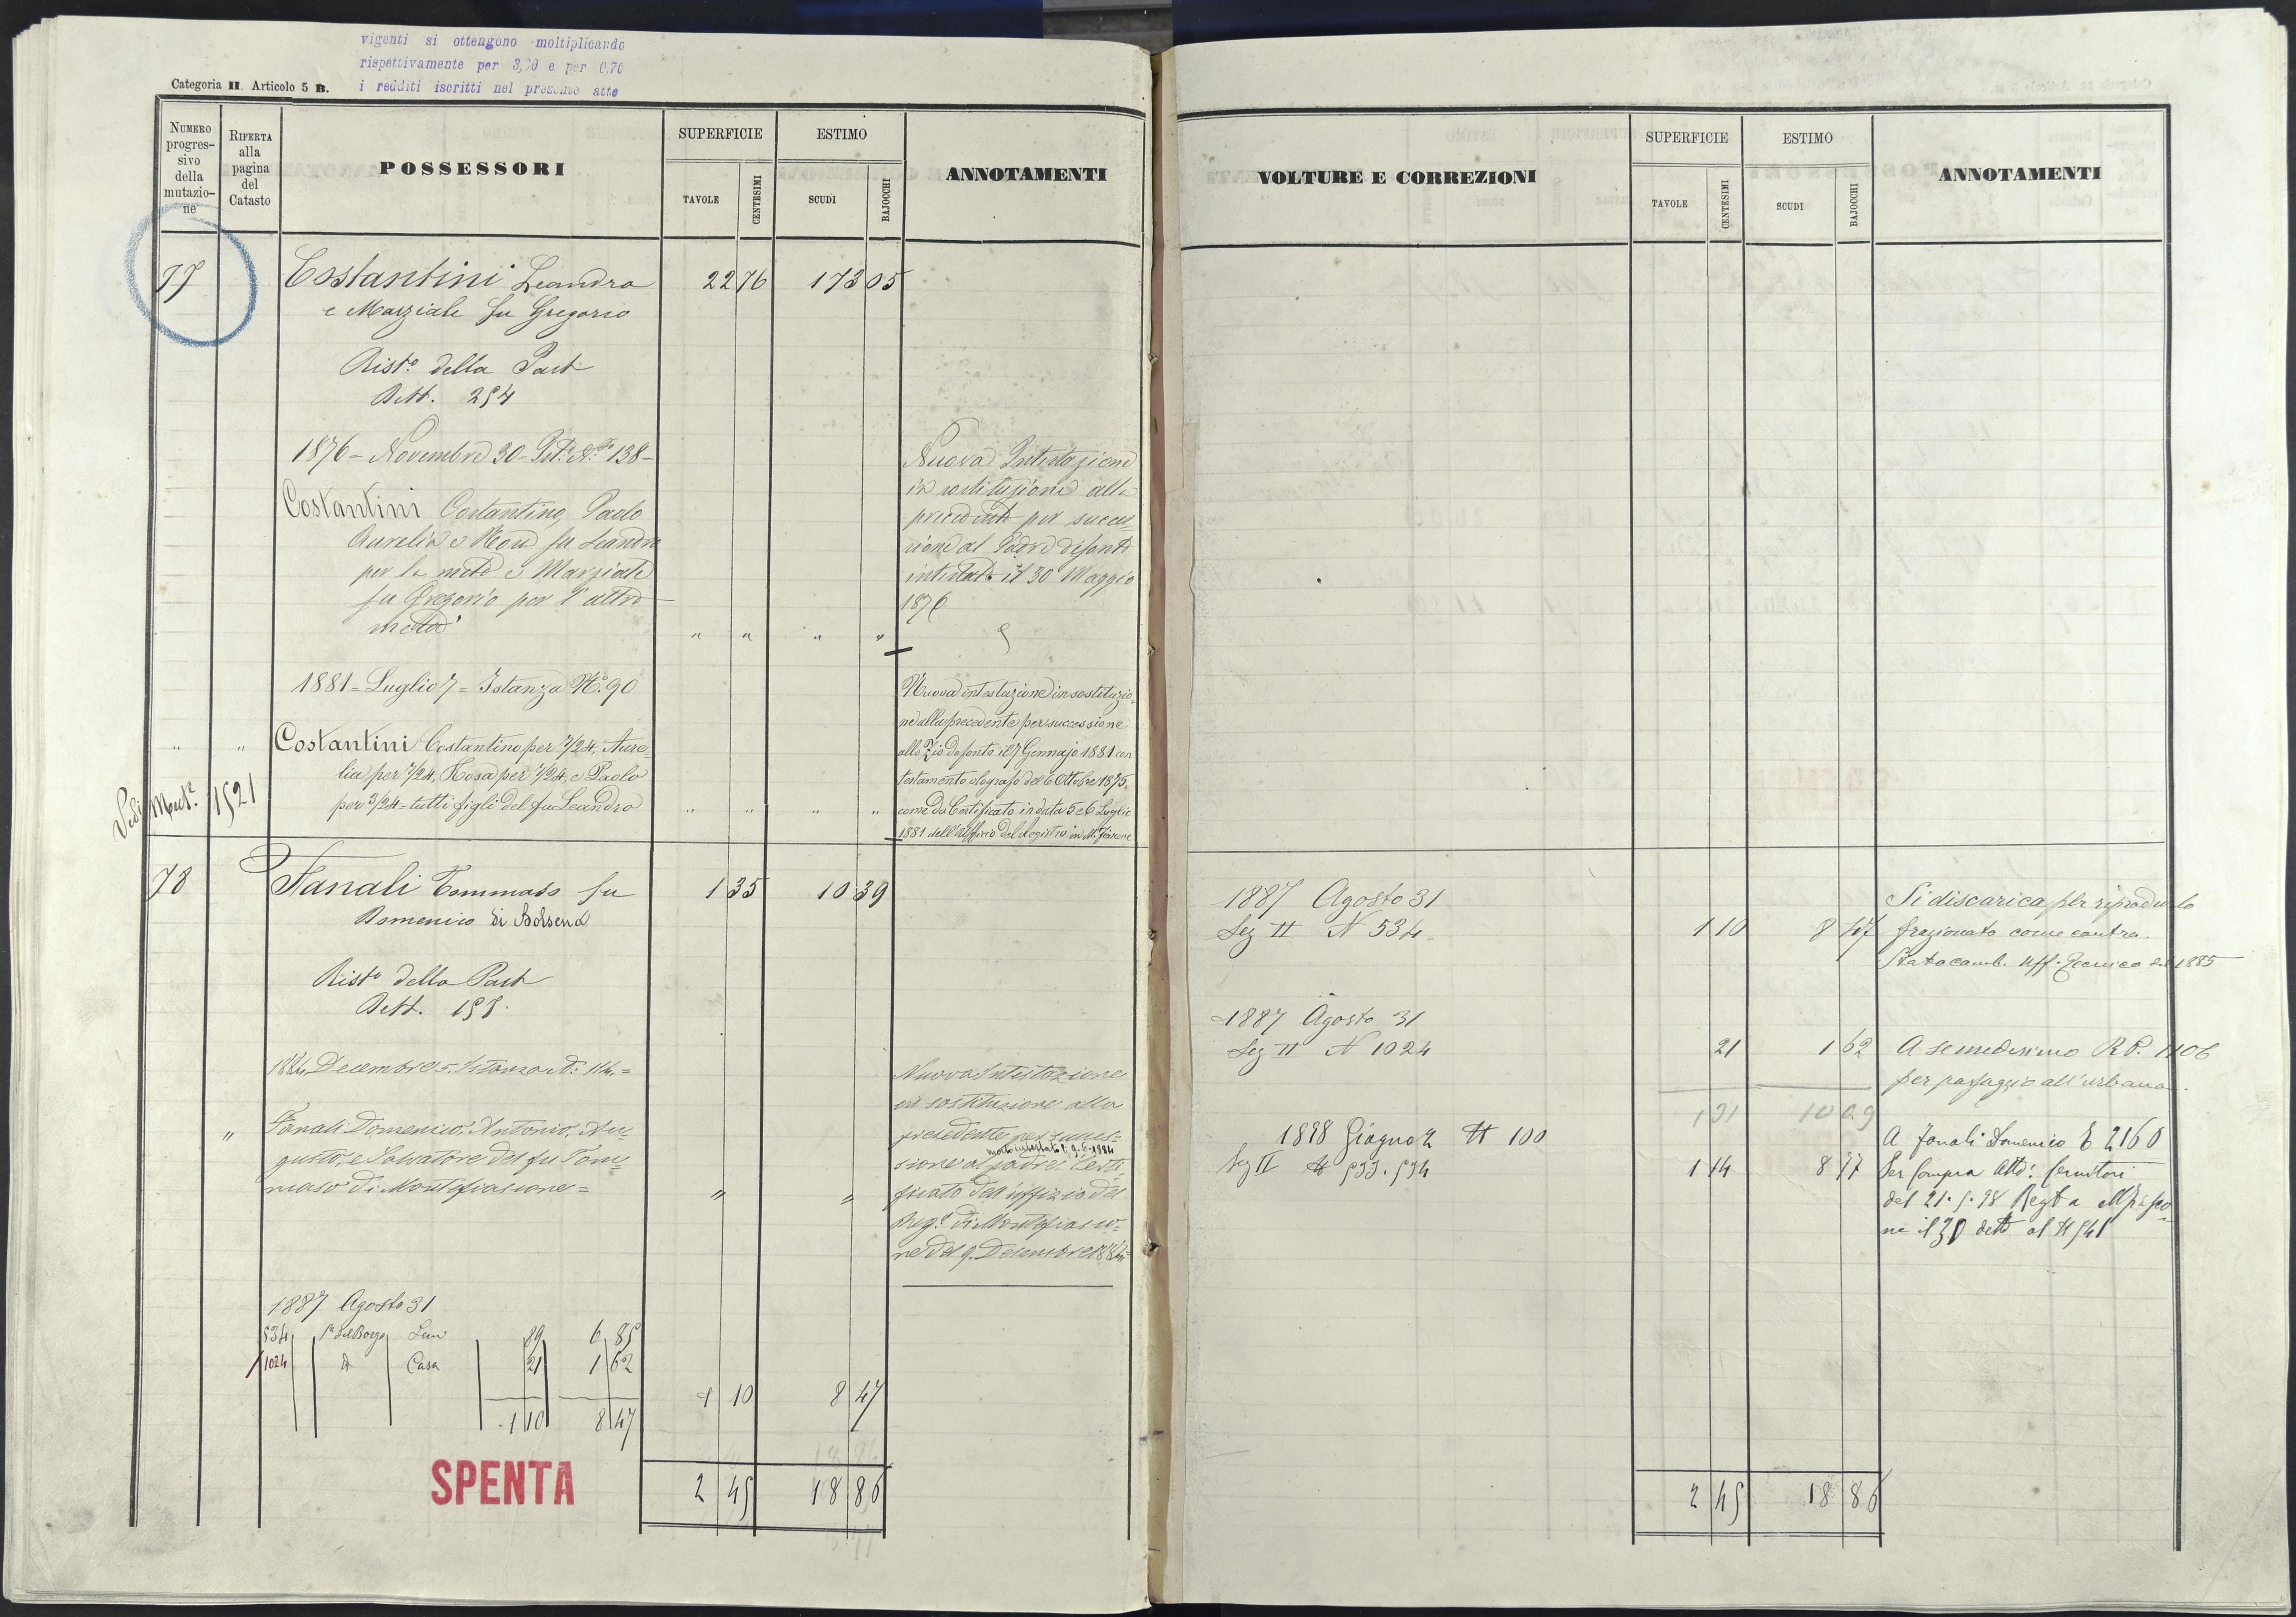 vigenti si ottengono moltiplicando
rispettivamente per 3,30 e per 0,70
i redditi iscritti nel presente atto
Categoria II. Articolo 5 B.
NUMERO progressivo della mutazione
RIFERTA alla pagina del Catasto
POSSESSORI
SUPERFICIE
TAVOLE
CENTESIMI
ESTIMO
SCUDI
BAJOCCHI
ANNOTAMENTI
77 Costantini Leandro 22 76 173 05
e Marziale fu Gregorio
Rist.o della Part
Bett. 254
1876 - Novembre 30 - 138 -
Costantini Costantino, Paolo
Aurelia e Rosa fu Leandro
per la metà e Marziale
fu Gregorio per l'altra
metà " " " "
Nuova Intestazione
in sostituzione alla
precedente per succes-
sione al Padre defonto
intestato il 30 Maggio
1876
1881 = Luglio 7 = Istanza N.o 90
" " Costantini Costantino per 7/24, Aure-
lia per 7/24, Rosa per 7/24, e Paolo
per 3/24 = tutti figli del fu Leandro " " " "
Vedi Mut.e 1521
Nuova intestazione in sostituzio-
ne alla precedente per successione
allo Zio defonto il 7 Gennajo 1881 con
testamento olografo del 6 Ottobre 1875,
come da Certificato in data 5 e 6 Luglio
1881 dell'Ufficio del Registro in M.fiascone
78 Fanali Tommaso fu 1 35 10 39
Domenico di Bolsena
Rist.o della Part
Bett. 155.
1884 Decembre 5. Istanza N: 114. =
" Fanali Domenico, Antonio, Au-
gusto, e Salvatore del fu Tom-
maso di Montefiascone = " "
Nuova Intestazione
in sostituzione alla
precedente per succes-
morto intestato il 9.6.1884
sione al padre: Certi-
ficato dell'uffizio del
Reg.o di Montefiasco-
ne del 9. Decembre 1884
1887 Agosto 31
534 S.a del Borgo 89 6 85
1024 d Casa 21 1 62
1 10 8 47
1 10 8 47
SPENTA
2 45 18 86
VOLTURE E CORREZIONI
SUPERFICIE
TAVOLE
CENTESIMI
ESTIMO
SCUDI
BAJOCCHI
ANNOTAMENTI
1887 Agosto 31
Sez II N 534 1 10 8 47
Si discarica per riprodurlo
frazionato come contro.
Stato camb. Uff. Tecnico del 1885
1887 Agosto 31
Sez II N 1024 21 1 62
A se medesimo R.P. 1106
per passaggio all'urbano.
1 31 10 09
1898 Giugno 2 N 100
Sez II N 533.534 1 14 8 77
A Fanali Domenico E 2160
Per Compra Atto: Cernitori
del 21.5.98 Regt a M.fiasco-
ne il 30 detto al N 541
2 45 18 86